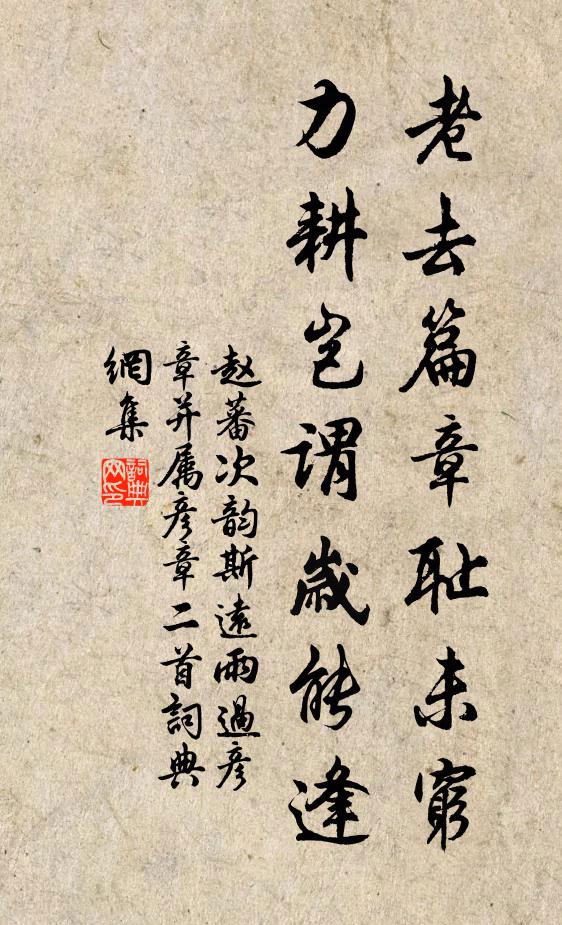 老去篇章耻未窮
力耕岂謂歲能逢
赵蕃次韵斯遠雨過彦
章并属彦章二首詞典
網集
詞典
网印